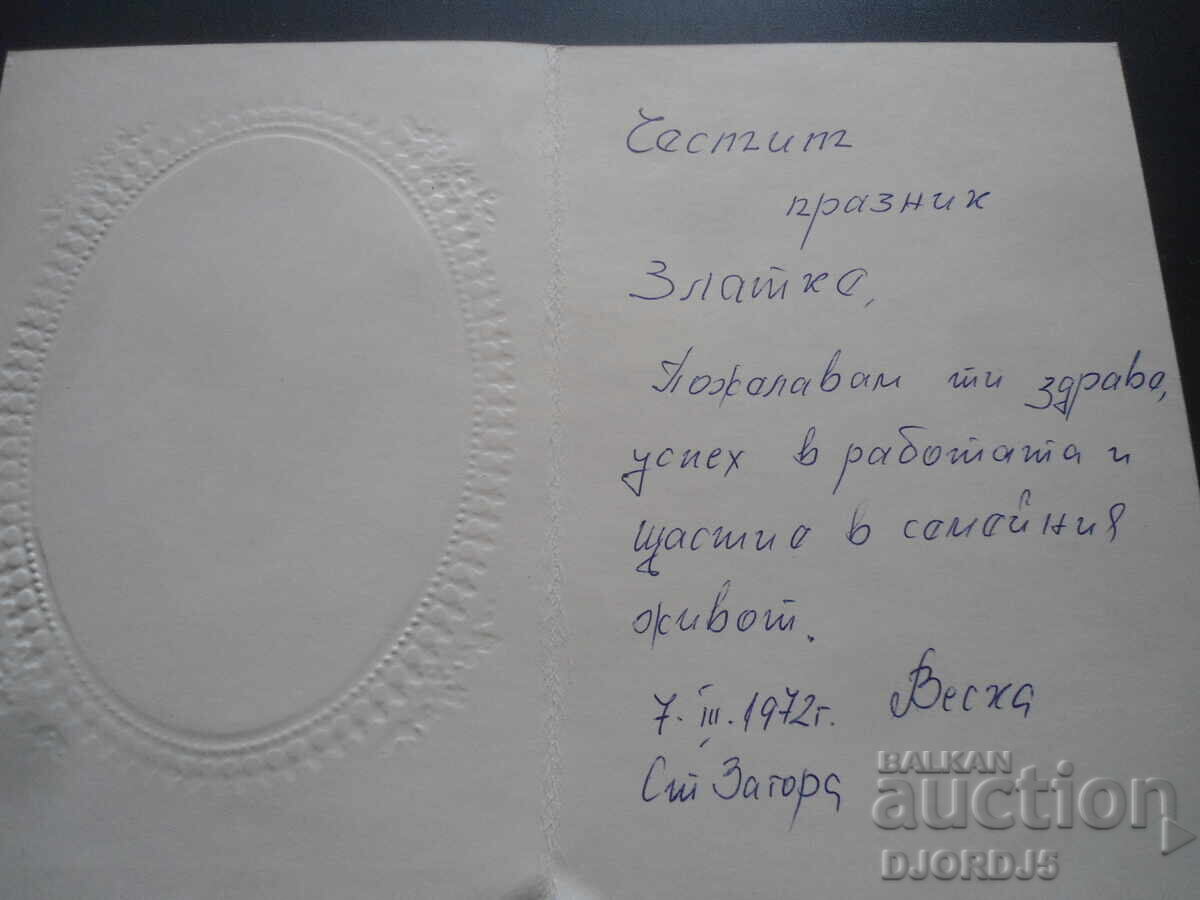 Честит
празник
Златке,
Пожелавам ти здраве,
успех в работата и
щастие в семейния
живот.
7. III. 1972г. Веска
Ст Загора
BALKAN
auction
DJORDJ5